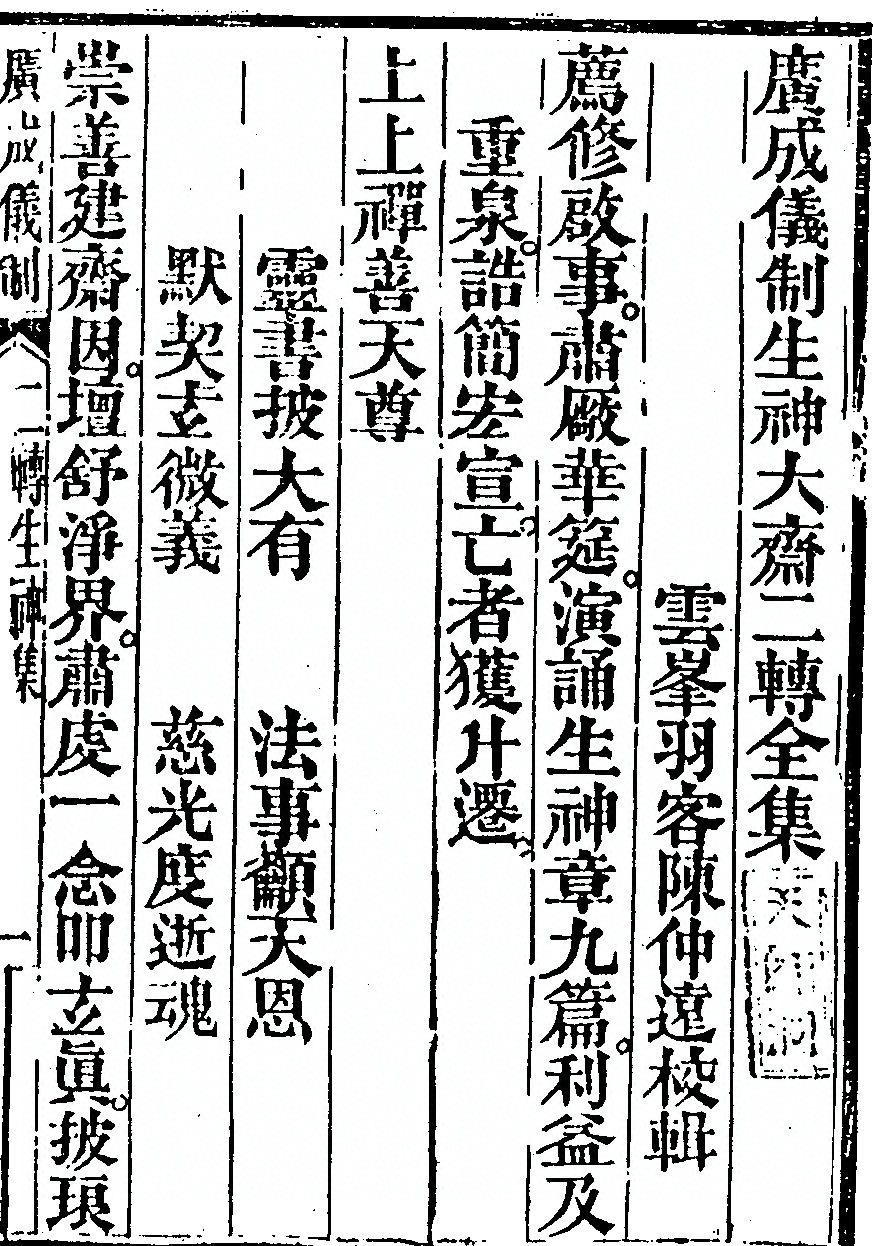 廣成儀制生神大齋二轉全集
雲峯羽客陳仲遠校輯
薦修啟事肅嚴華筵演誦生神章九篇利益及
重泉誥簡宏宣亡者獲升遷
上上禪善天尊
靈書披大有　法事籲天恩
默契玄微義　慈光度逝魂
崇善建齋因壇舒淨界肅虔一念叩玄眞披琅
廣成儀制　二轉生神集　一